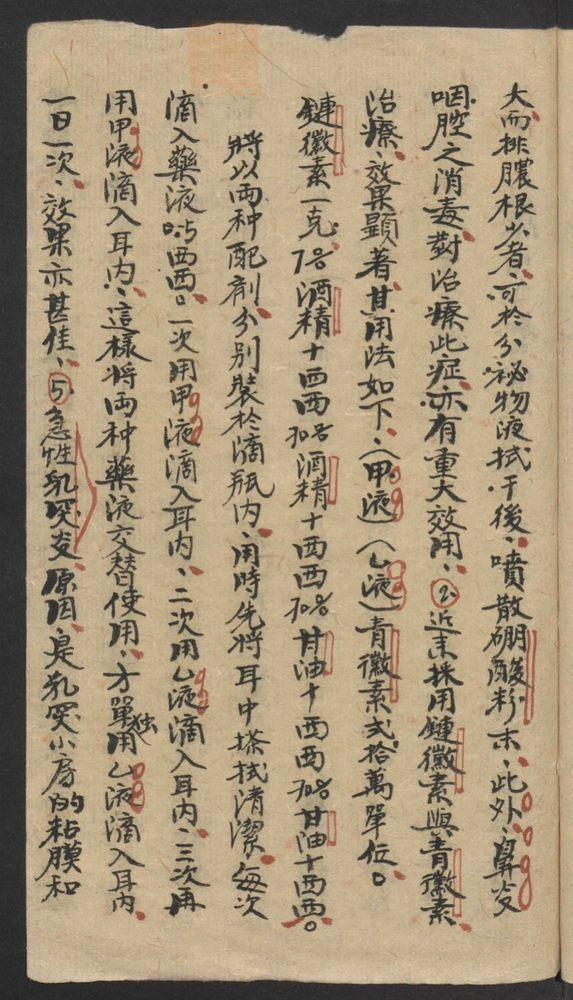 大、而排膿根少者、可於分祕物液拭干後、噴散硼酸粉末、此外、鼻炎
咽腔之消毒、對治療此症、亦有重大效用、②近來採用鏈黴素與青黴素
治療、效果顯著、其用法如下、(甲液)(乙液)青黴素弍拾萬單位。
鏈黴素一克、70%酒精十西西70%酒精十西西70%甘油十西西70%甘油十西西。
將以兩种配剤分別裝於滴瓶内、用時先將耳中搽拭清潔、每次
滴入藥液0.5西西。一次用甲液滴入耳内、二次用乙液滴入耳内、三次再
用甲液滴入耳内、這樣将両种藥液交替使用、方單独用乙液滴入耳内、
一日一次、效果亦甚佳、⑤急性乳突炎、原因、是乳突小房的粘膜和